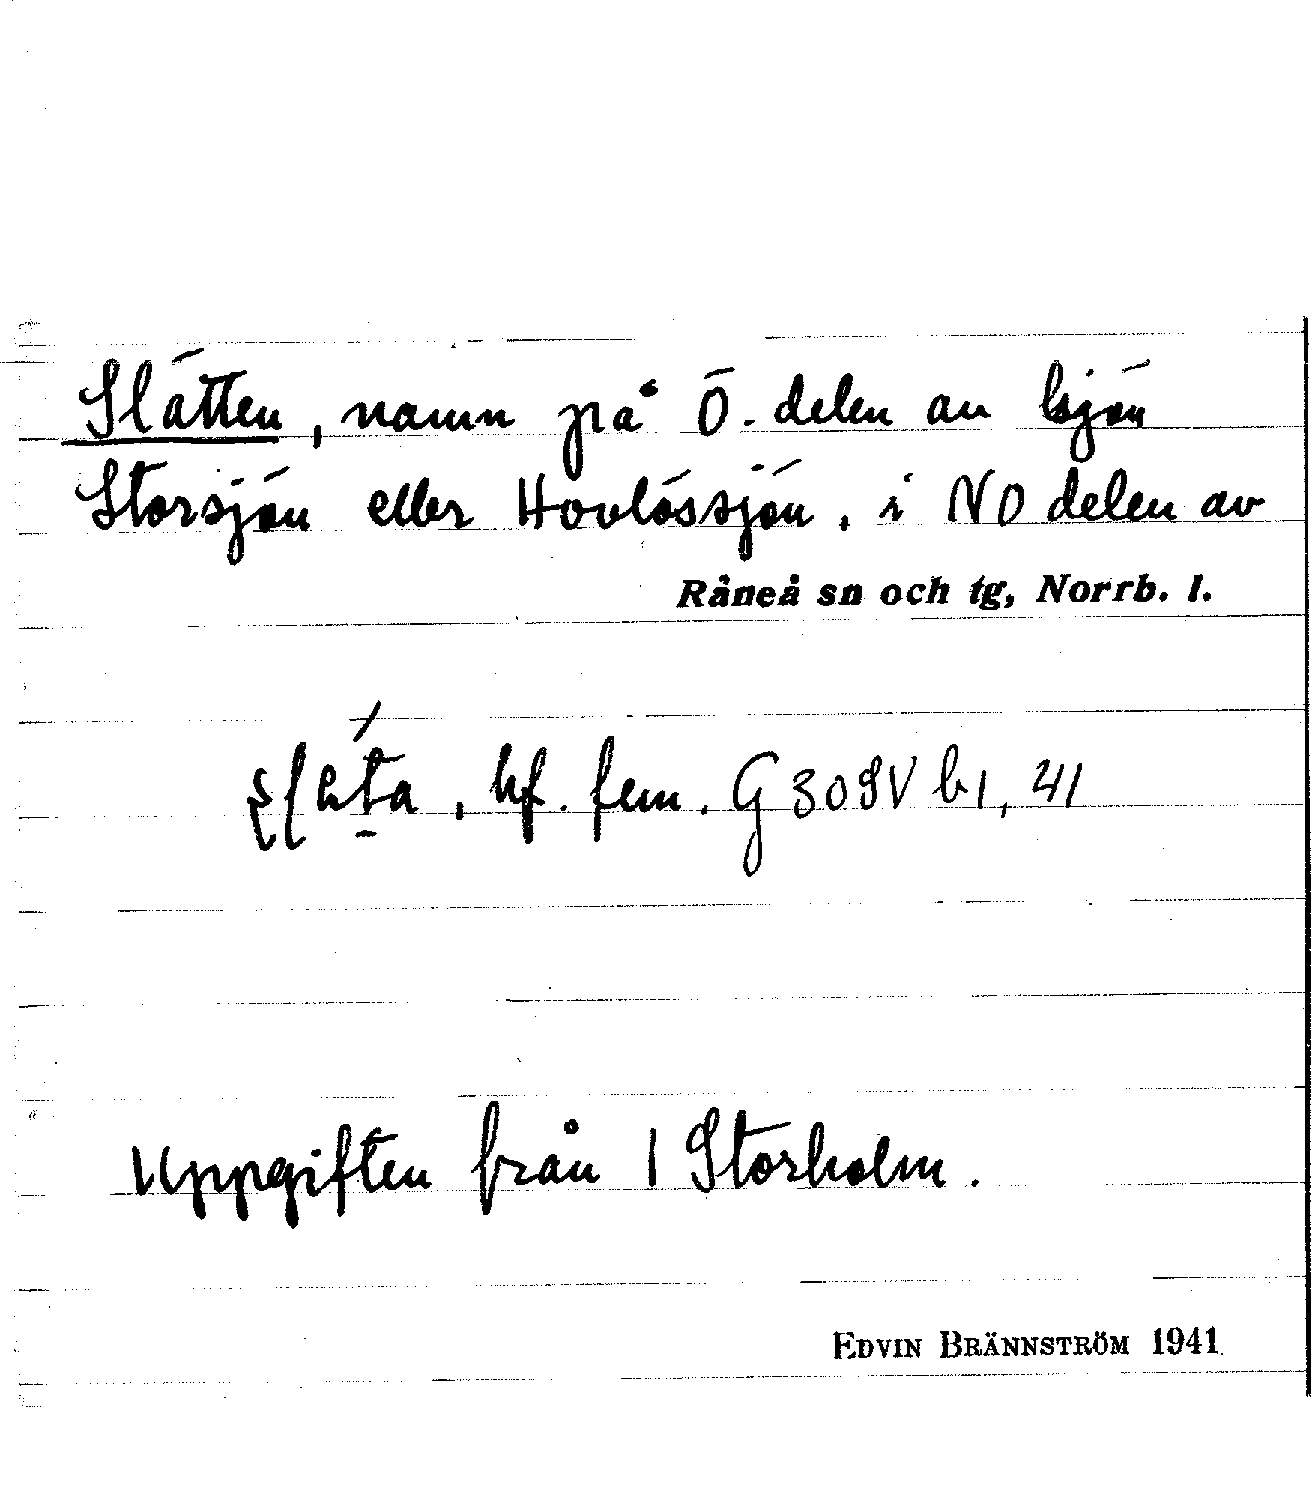 Slätten, namn på Ö. delen av tsjön
Storsjön eller Hovlössjön, i NO delen av
Råneå sn och tg, Norrb. l.
bf. fem. G 309 V b1, 41
Uppgiften från 1 Storholm.
EDVIN BRÄNNSTRÖM 1941